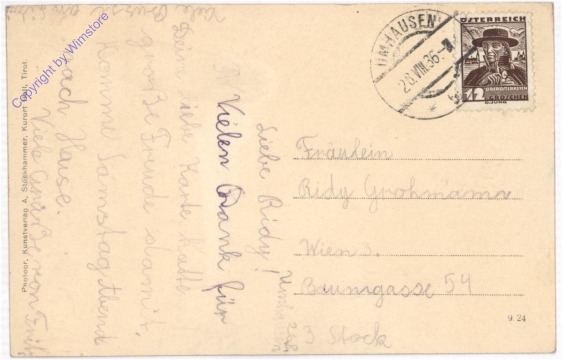 Liebe Ridy!
Vielen Dank für
liebe Karte hatte
große Freude damit,
komme Samstag Abend
nach Hause.
Viele Grüße von
Viele
Fräulein
Ridy Grohmann
Wien 3.
Baumgasse 54
3 Stock
UMHAUSEN
26.VIII.36
ÖSTERREICH
12
OBERÖSTERREICH
GROSCHEN
9.24
Copyright by Wimstore
Photoor, Kunstverlag A. Stockhammer, Kurort Hall, Tirol.